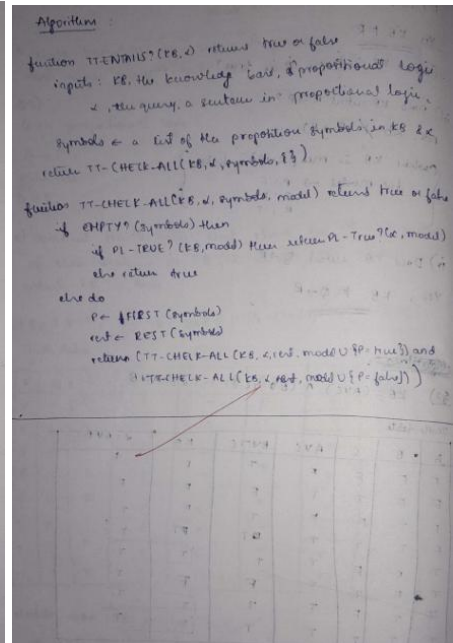 Algorithm :
function TT-ENTAILS? (KB, α) returns true or false
inputs : KB, the knowledge base, a propositional logic
α, the query, a sentence in propositional logic.
symbols ← a list of the proposition symbols in KB & α
return TT-CHECK-ALL(KB, α, symbols, { })
function TT-CHECK-ALL(KB, α, symbols, model) returns true or false
if EMPTY? (symbols) then
if PL-TRUE? (KB, model) then return PL-True? (α, model)
else return true
else do
P ← FIRST (symbols)
rest ← REST (symbols)
return (TT-CHECK-ALL (KB, α, rest, model ∪ {P = true}) and
TT-CHECK-ALL (KB, α, rest, model ∪ {P = false}))